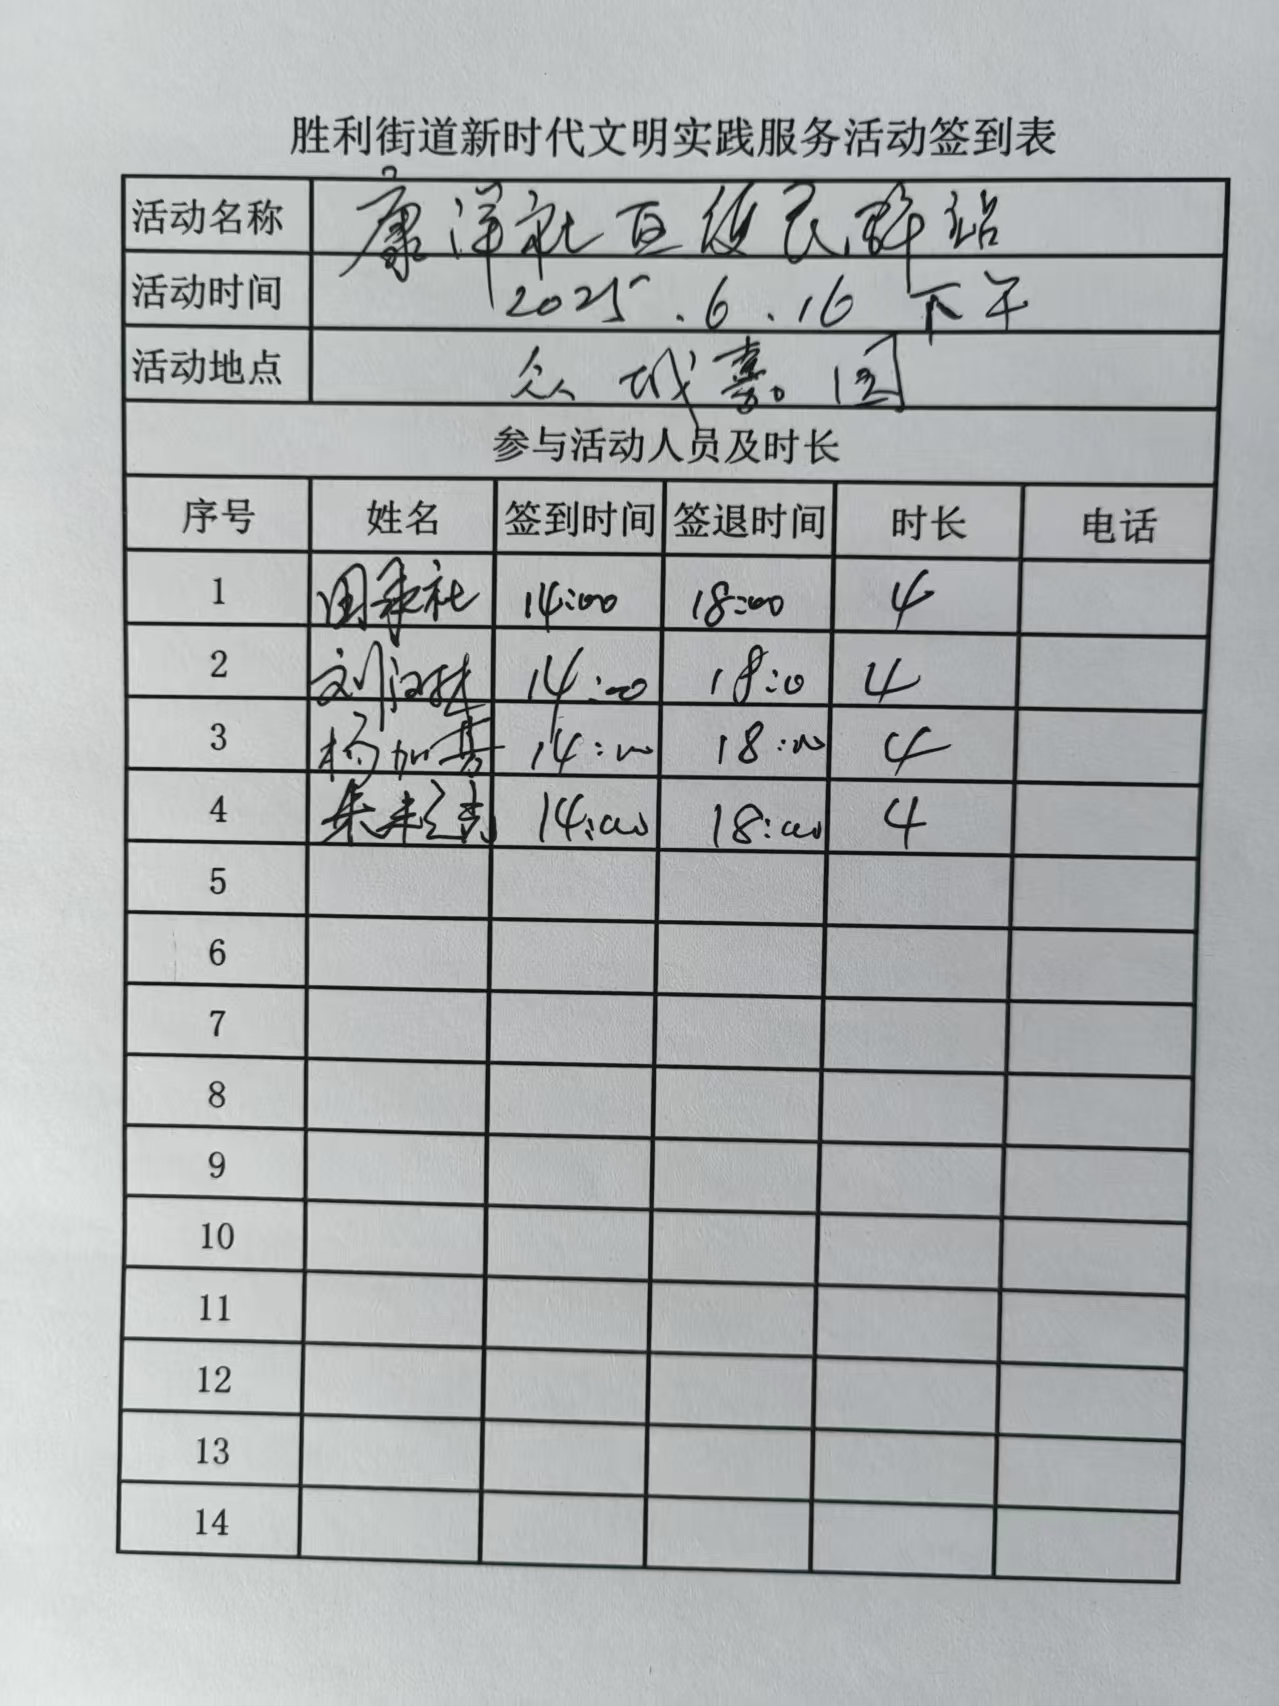 胜利街道新时代文明实践服务活动签到表
活动名称 康洋社区便民驿站
活动时间 2025.6.16 下午
活动地点 众城嘉园
参与活动人员及时长
序号 姓名 签到时间 签退时间 时长 电话
1 14:00 18:00 4
2 刘 14:00 18:0 4
3 杨加 14:00 18:00 4
4 朱 14:00 18:00 4
5
6
7
8
9
10
11
12
13
14